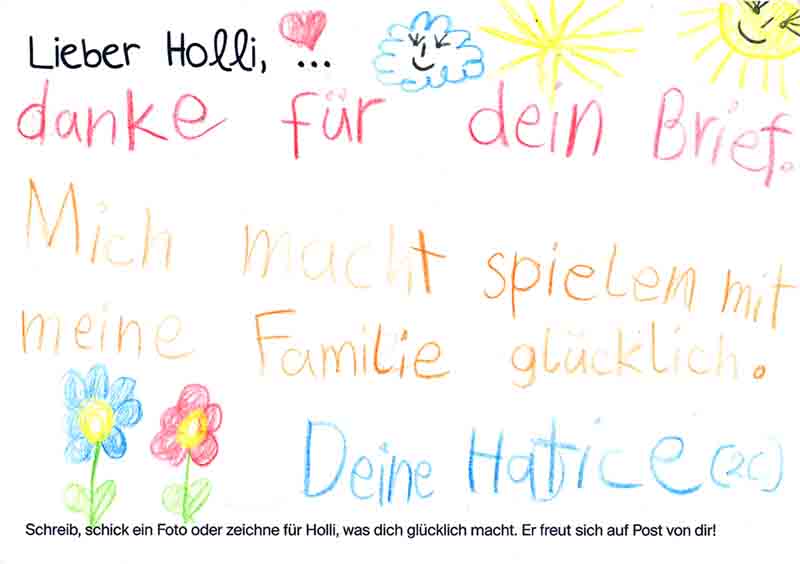 Lieber Holli, ...
danke für dein Brief.
Mich macht spielen mit
meine Familie glücklich.
Deine Hatice (2c)
Schreib, schick ein Foto oder zeichne für Holli, was dich glücklich macht. Er freut sich auf Post von dir!